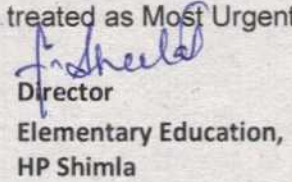 treated as Most Urgent
Director
Elementary Education,
HP Shimla